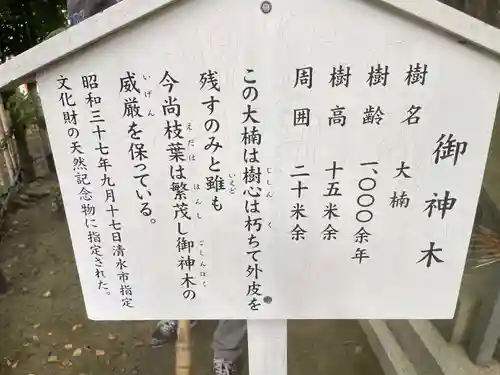 御神木
樹名 大楠
樹齢 一、〇〇〇余年
樹高 十五米余
周囲 二十米余
この大楠は樹心は朽ちて外皮を
残すのみと雖も
今尚枝葉は繁茂し御神木の
威厳を保っている。
昭和三十七年九月十七日清水市指定
文化財の天然記念物に指定された。
じしん
く
いえど
えだは
はんし
ごしんぼく
いげん